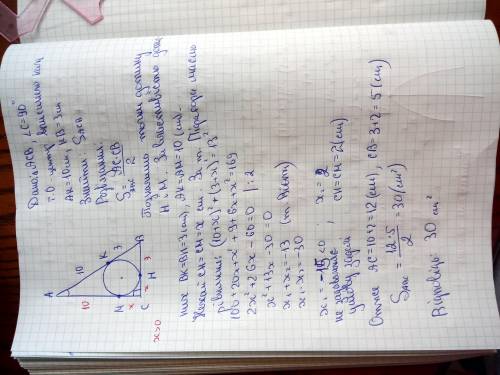 Дано: △ACB, ∠C=90°
т. O - центр вписаного кола
AK=10см, KB=3см
Знайти: S△ACB
Розв'язання
S△ACB = AC·CB / 2
Позначимо точки дотику
H і M. За властивістю дотичних
BK=BH=3(см), AK=AM=10(см).
Нехай CM=CH=x см. За т. Піфагора маємо
рівняння: (10+x)²+(3+x)²=13²
100+20x+x²+9+6x+x²=169
2x²+26x-60=0 |:2
x²+13x-30=0
x₁+x₂=-13 (т. Вієта)
x₁·x₂=-30
x₁=-15<0 x₂=2
не задовольняє ; CM=CH=2(см)
умову задачі
Отже AC=10+2=12(см), CB=3+2=5(см)
S△ACB = 12·5 / 2 = 30(см²)
Відповідь: 30 см²
A
10
K
10
3
B
O
3
H
M
x
x
C
x>0